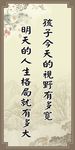 孩子今天的视野有多宽
明天的人生格局就有多大